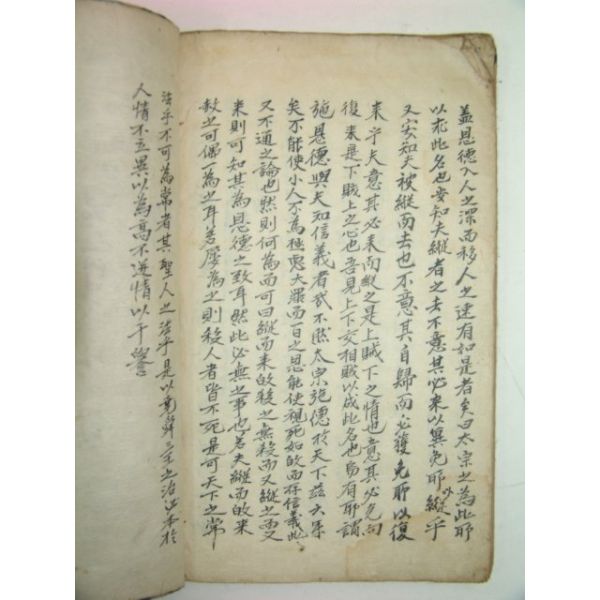 盖恩德入人之深而移人之速有如是者矣曰太宗之為此所
以求此名也安知夫縱者之去不意其必来以兾免所以縱乎
又安知夫被縱而去也不意其自歸而必獲免所以復
来乎夫意其必来而縱之是上賊下之情也意其必免而
復来是下賊上之心也吾見上下交相賊以成此名也烏有所謂
施恩德與夫知信義者哉不然太宗施德於天下茲六年
矣不能使小人不為極惡大罪而一日之恩能使視死如歸而存信義此
又不通之論也然則何為而可曰縱而来歸殺之無赦而又縱之而又
来則可知其為恩德之致耳然此必無之事也若夫縱而歸来
赦之可偶一為之耳若屢為之則殺人者皆不死是可天下之常
法乎不可為常者其聖人之法乎是以堯舜三王之治必本於
人情不立異以為高不逆情以干譽